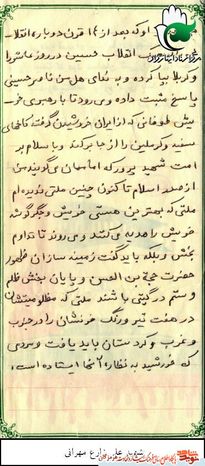 اوکه بعد از ۱۴ قرن دوباره انقلاب
انقلاب حسین در روز عاشورا
و کربلا بپا کرده و به ندای هل من ناصر حسینی
پاسخ مثبت داده و می رود تا با رهبری خو
یش طوفانی که از ایران خروشیدن گرفته کاخهای
سفید و کرملین را از جا برکند و با سلام بر
امت شهید پرور که امامان می گویند من
از صدر اسلام تا کنون چنین ملتی ندیده ام
ملتی که بهترین هستی خویش و جگرگوشه
خویش را هدیه می کنند و می روند تا تداوم
بخش و بلکه باید گفت زمینه سازان ظهور
حضرت حجة بن الحسن و پایان بخش ظلم
و ستم در گیتی باشند ملتی که مظلومیتشان
در هفت تیر و رنگ خونشان را در جنوب
و غرب و کردستان باید یافت و مردمی
که خورشید به نظاره آنها ایستاده است.
شهید علی زارع مهرانی